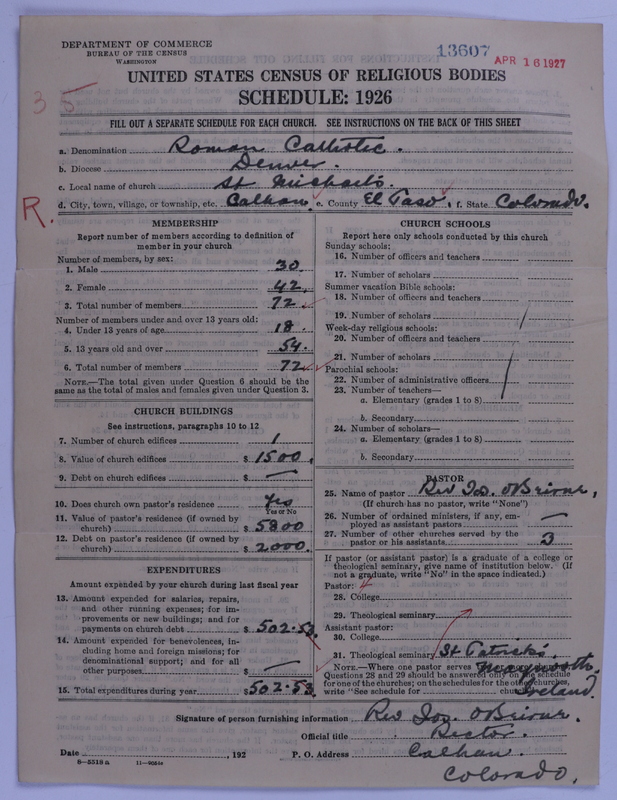 DEPARTMENT OF COMMERCE
BUREAU OF THE CENSUS
WASHINGTON
13607
APR 16 1927
UNITED STATES CENSUS OF RELIGIOUS BODIES
SCHEDULE: 1926
35
FILL OUT A SEPARATE SCHEDULE FOR EACH CHURCH. SEE INSTRUCTIONS ON THE BACK OF THIS SHEET
a. Denomination Roman Catholic.
b. Diocese Denver.
c. Local name of church St Michael's.
R.
d. City, town, village, or township, etc. Calhan. e. County El Paso. f. State Colorado.
MEMBERSHIP
Report number of members according to definition of
member in your church
Number of members, by sex:
1. Male 30.
2. Female 42.
3. Total number of members 72
Number of members under and over 13 years old:
4. Under 13 years of age 18.
5. 13 years old and over 54.
6. Total number of members 72
NOTE.—The total given under Question 6 should be the
same as the total of males and females given under Question 3.
CHURCH BUILDINGS
See instructions, paragraphs 10 to 12
7. Number of church edifices 1
8. Value of church edifices $ 1500.
9. Debt on church edifices $ —
10. Does church own pastor's residence Yes
Yes or No
11. Value of pastor's residence (if owned by
church) $ 5800
12. Debt on pastor's residence (if owned by
church) $ 2000.
EXPENDITURES
Amount expended by your church during last fiscal year
13. Amount expended for salaries, repairs,
and other running expenses; for im-
provements or new buildings; and for
payments on church debt $ 502.53
14. Amount expended for benevolences, in-
cluding home and foreign missions; for
denominational support; and for all
other purposes $ —
15. Total expenditures during year $ 502.53
CHURCH SCHOOLS
Report here only schools conducted by this church
Sunday schools:
16. Number of officers and teachers
17. Number of scholars
Summer vacation Bible schools:
18. Number of officers and teachers
19. Number of scholars
Week-day religious schools:
20. Number of officers and teachers
21. Number of scholars
Parochial schools:
22. Number of administrative officers
23. Number of teachers—
a. Elementary (grades 1 to 8)
b. Secondary
24. Number of scholars—
a. Elementary (grades 1 to 8)
b. Secondary
PASTOR
25. Name of pastor Rev Jos. O'Beirne,
(If church has no pastor, write "None")
26. Number of ordained ministers, if any, em-
ployed as assistant pastors —
27. Number of other churches served by the
pastor or his assistants 3
If pastor (or assistant pastor) is a graduate of a college or
theological seminary, give name of institution below. (If
not a graduate, write "No" in the space indicated.)
Pastor:
28. College
29. Theological seminary
Assistant pastor:
30. College
31. Theological seminary St Patricks
Maynooth
Ireland.
NOTE.—Where one pastor serves
Questions 28 and 29 should be answered only on the schedule
for one of the churches; on the schedules for the other churches,
write "See schedule for
Signature of person furnishing information Rev Jos. O'Beirne.
Official title Rector.
Date , 192 P. O. Address Calhan.
Colorado.
8—5518a 11—9034